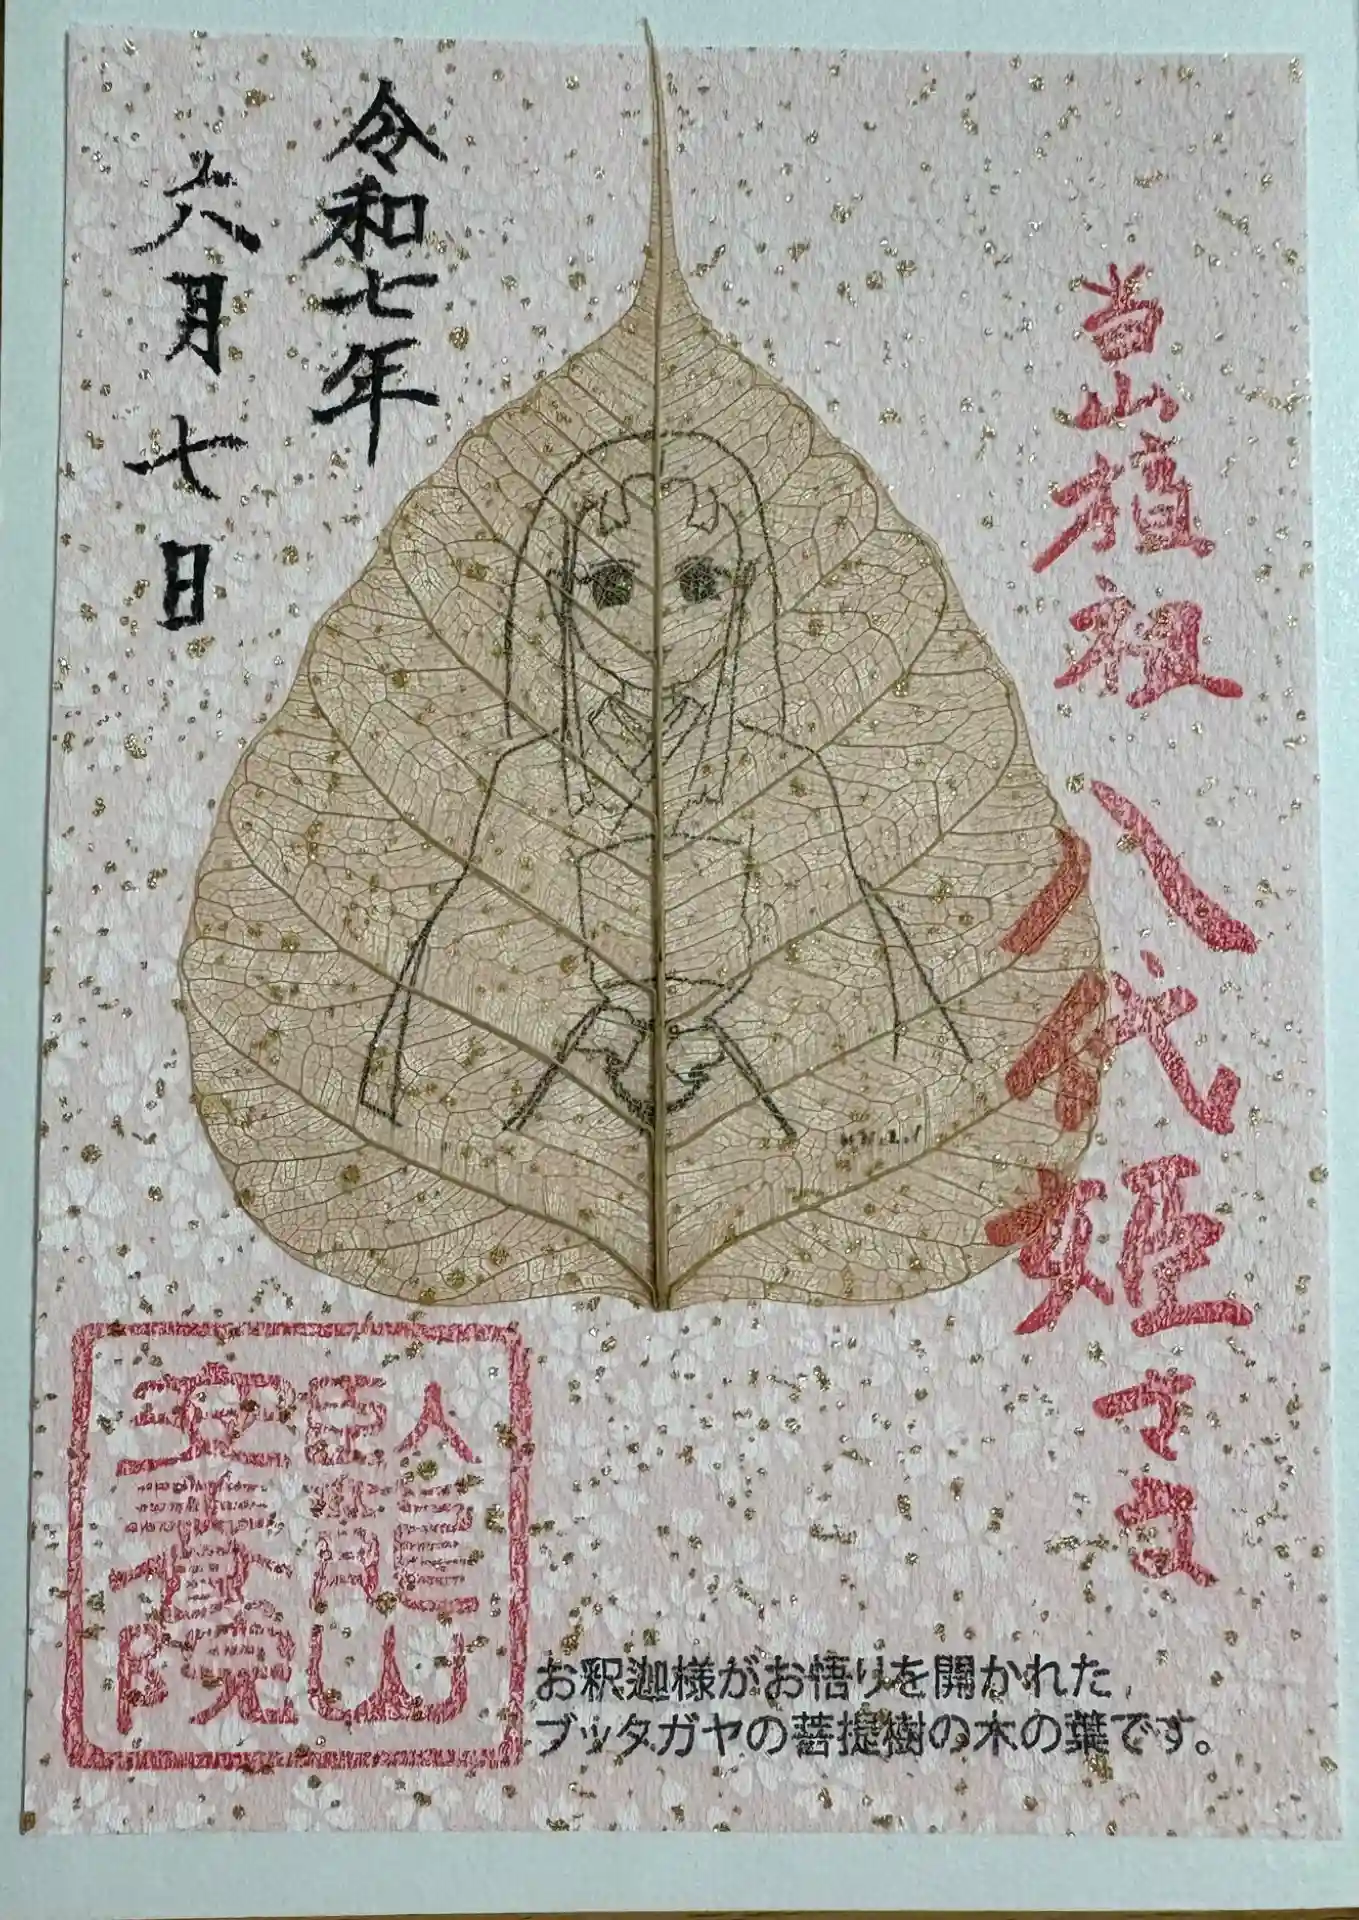 当山植祖
八代姫さま
令和七年
六月七日
お釈迦様がお悟りを開かれた、
ブッタガヤの菩提樹の木の葉です。